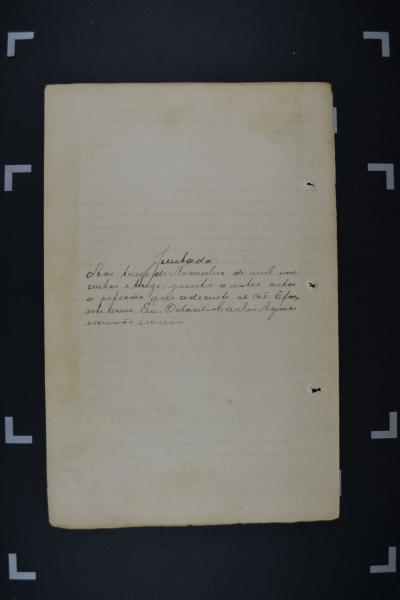 Juntada.
Aos treze de Novembro de mil nove
centos e treze, junto a estes autos
a petição que adiante se vê. E faço
este termo. Eu,
escrivão escrevi